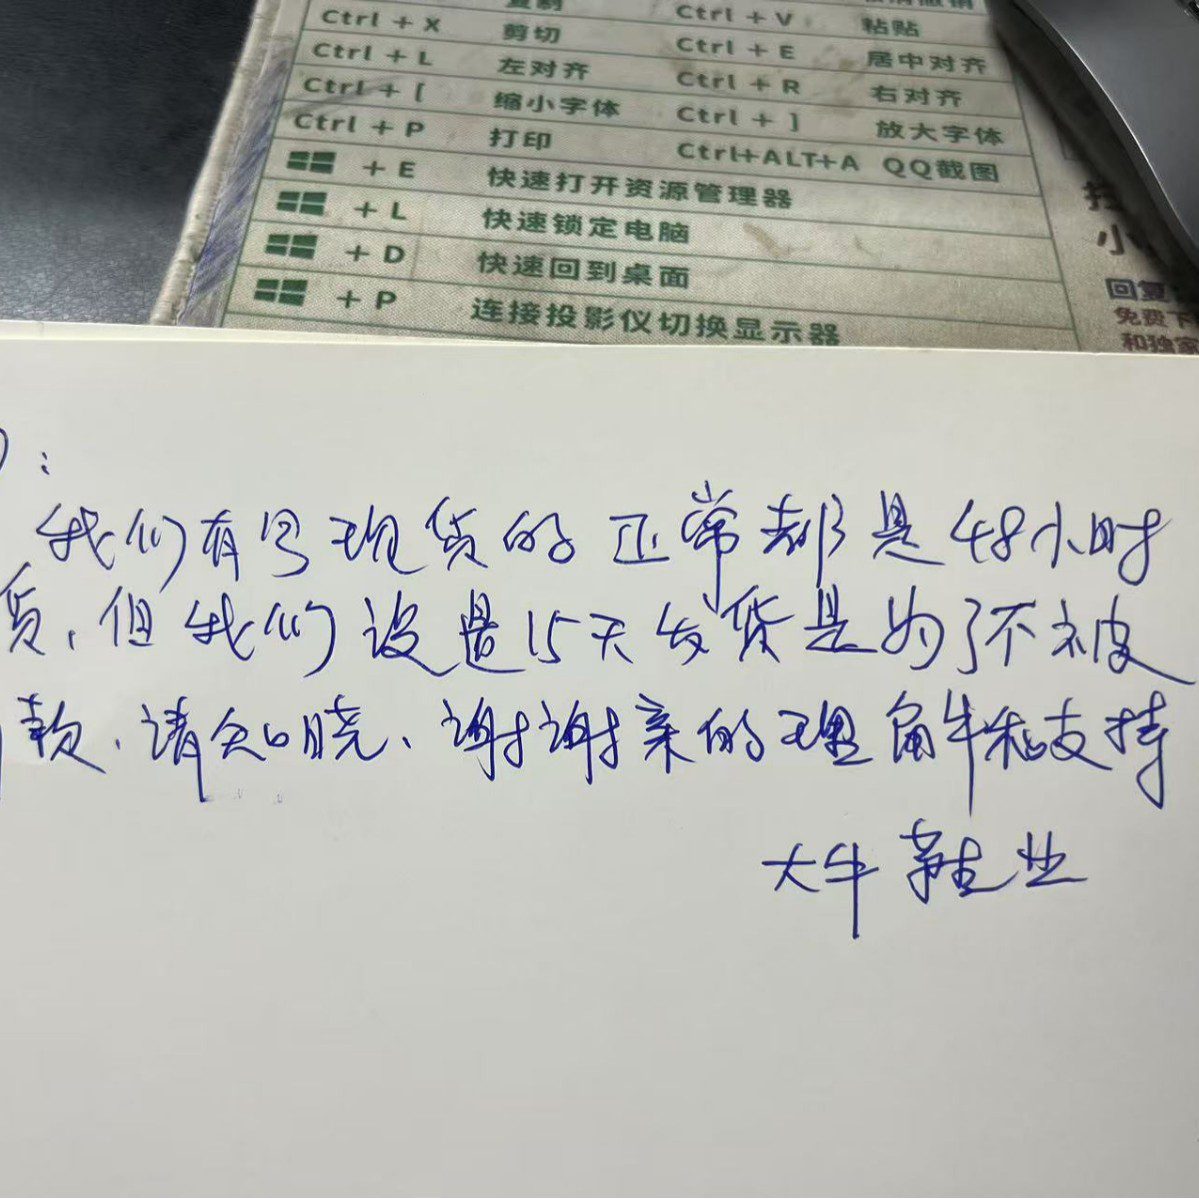 复制
Ctrl + X 剪切 Ctrl + V 粘贴
Ctrl + L 左对齐 Ctrl + E 居中对齐
Ctrl + [ 缩小字体 Ctrl + R 右对齐
Ctrl + P 打印 Ctrl + ] 放大字体
+ E 快速打开资源管理器 Ctrl+ALT+A QQ截图
+ L 快速锁定电脑
+ D 快速回到桌面
+ P 连接投影仪切换显示器
小
回复
免费下
和独家
:
我们有号现货的正常都是48小时
货,但我们设置15天发货是为了不被
款、请知晓、谢谢亲的理解和支持
大牛鞋业